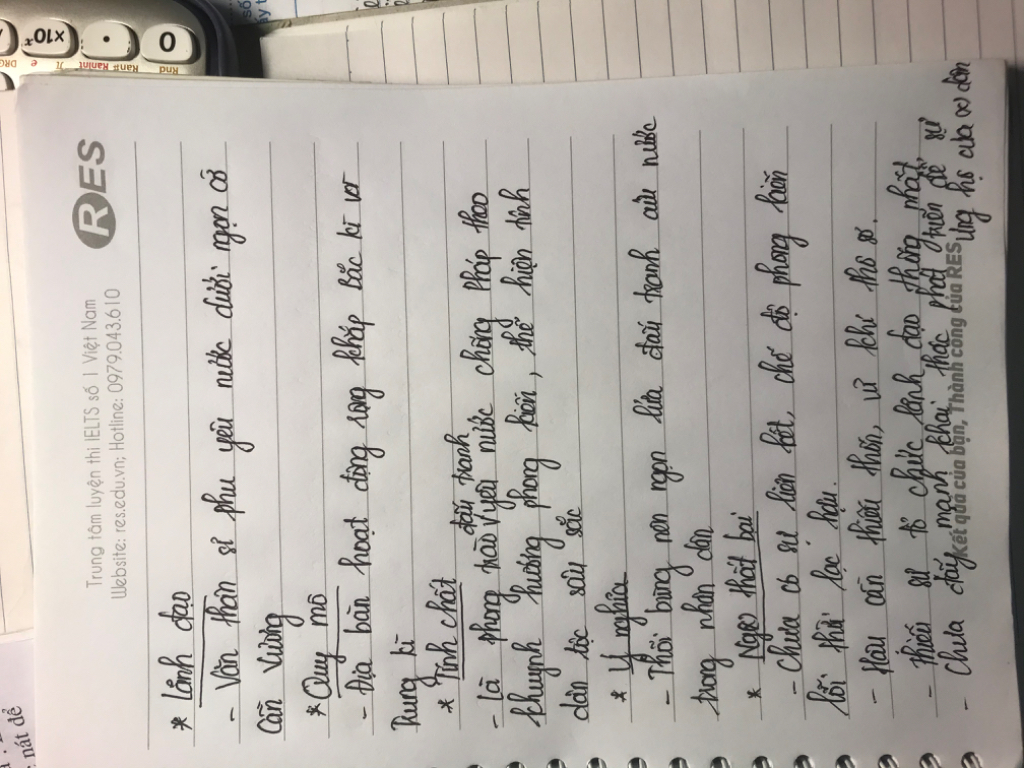 RES
Trung tâm luyện thi IELTS số 1 Việt Nam
Website: res.edu.vn; Hotline: 0979.043.610
* Lãnh đạo
- Văn thân sĩ phu yêu nước dưới ngọn cờ
Cần Vương
* Quy mô
- Địa bàn hoạt động rộng khắp Bắc kì và
Trung kì
* Tính chất
đấu tranh
- Là phong trào yêu nước chống Pháp theo
khuynh hướng phong kiến, thể hiện tính
dân tộc sâu sắc
* Ý nghĩa
- Thổi bùng nên ngọn lửa đấu tranh cứu nước
trong nhân dân
* Ng thất bại
- Chưa có sự liên kết, chế độ phong kiến
lỗi thời lạc hậu.
- Hậu cần thiếu thốn, vũ khí thô sơ.
- Thiếu sự tổ chức lãnh đạo thống nhất
- Chưa đẩy mạnh khai thác mở để sự
ủng hộ của dân
Kết quả của bạn, Thành công của RES
0
•
×10ˣ
Rnd
Ran#
RanInt
π
e
DRG
nát dề
số